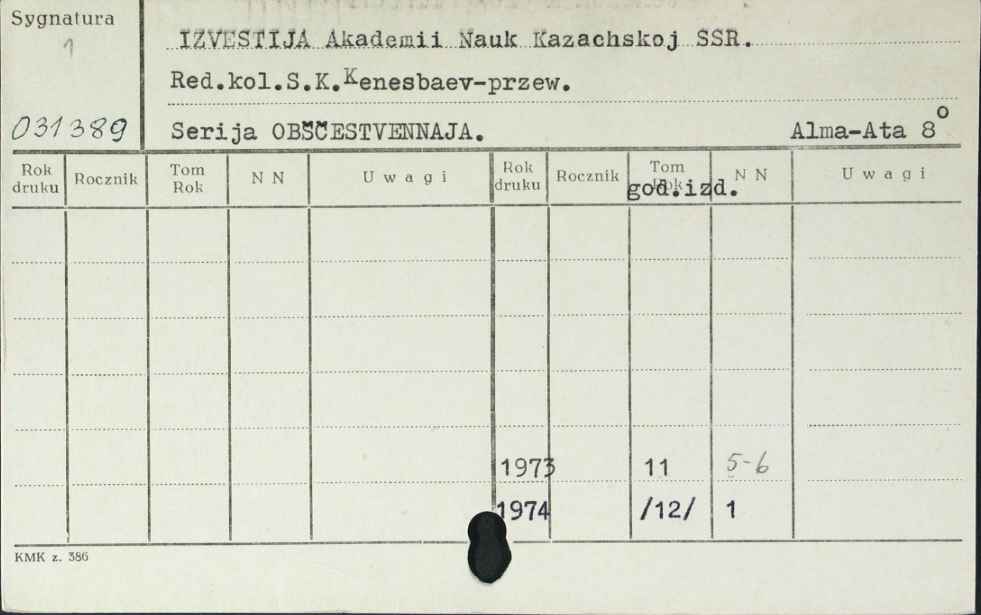 Sygnatura
1
IZVESTIJA Akademii Nauk Kazachskoj SSR.
Red.kol.S.K.Kenesbaev-przew.
031389 Serija OBŠČESTVENNAJA. Alma-Ata 8°
Rok druku Rocznik Tom Rok N N Uwagi Rok druku Rocznik Tom Rok N N Uwagi
god.izd.
1973 11 5-6
1974 /12/ 1
KMK z. 386